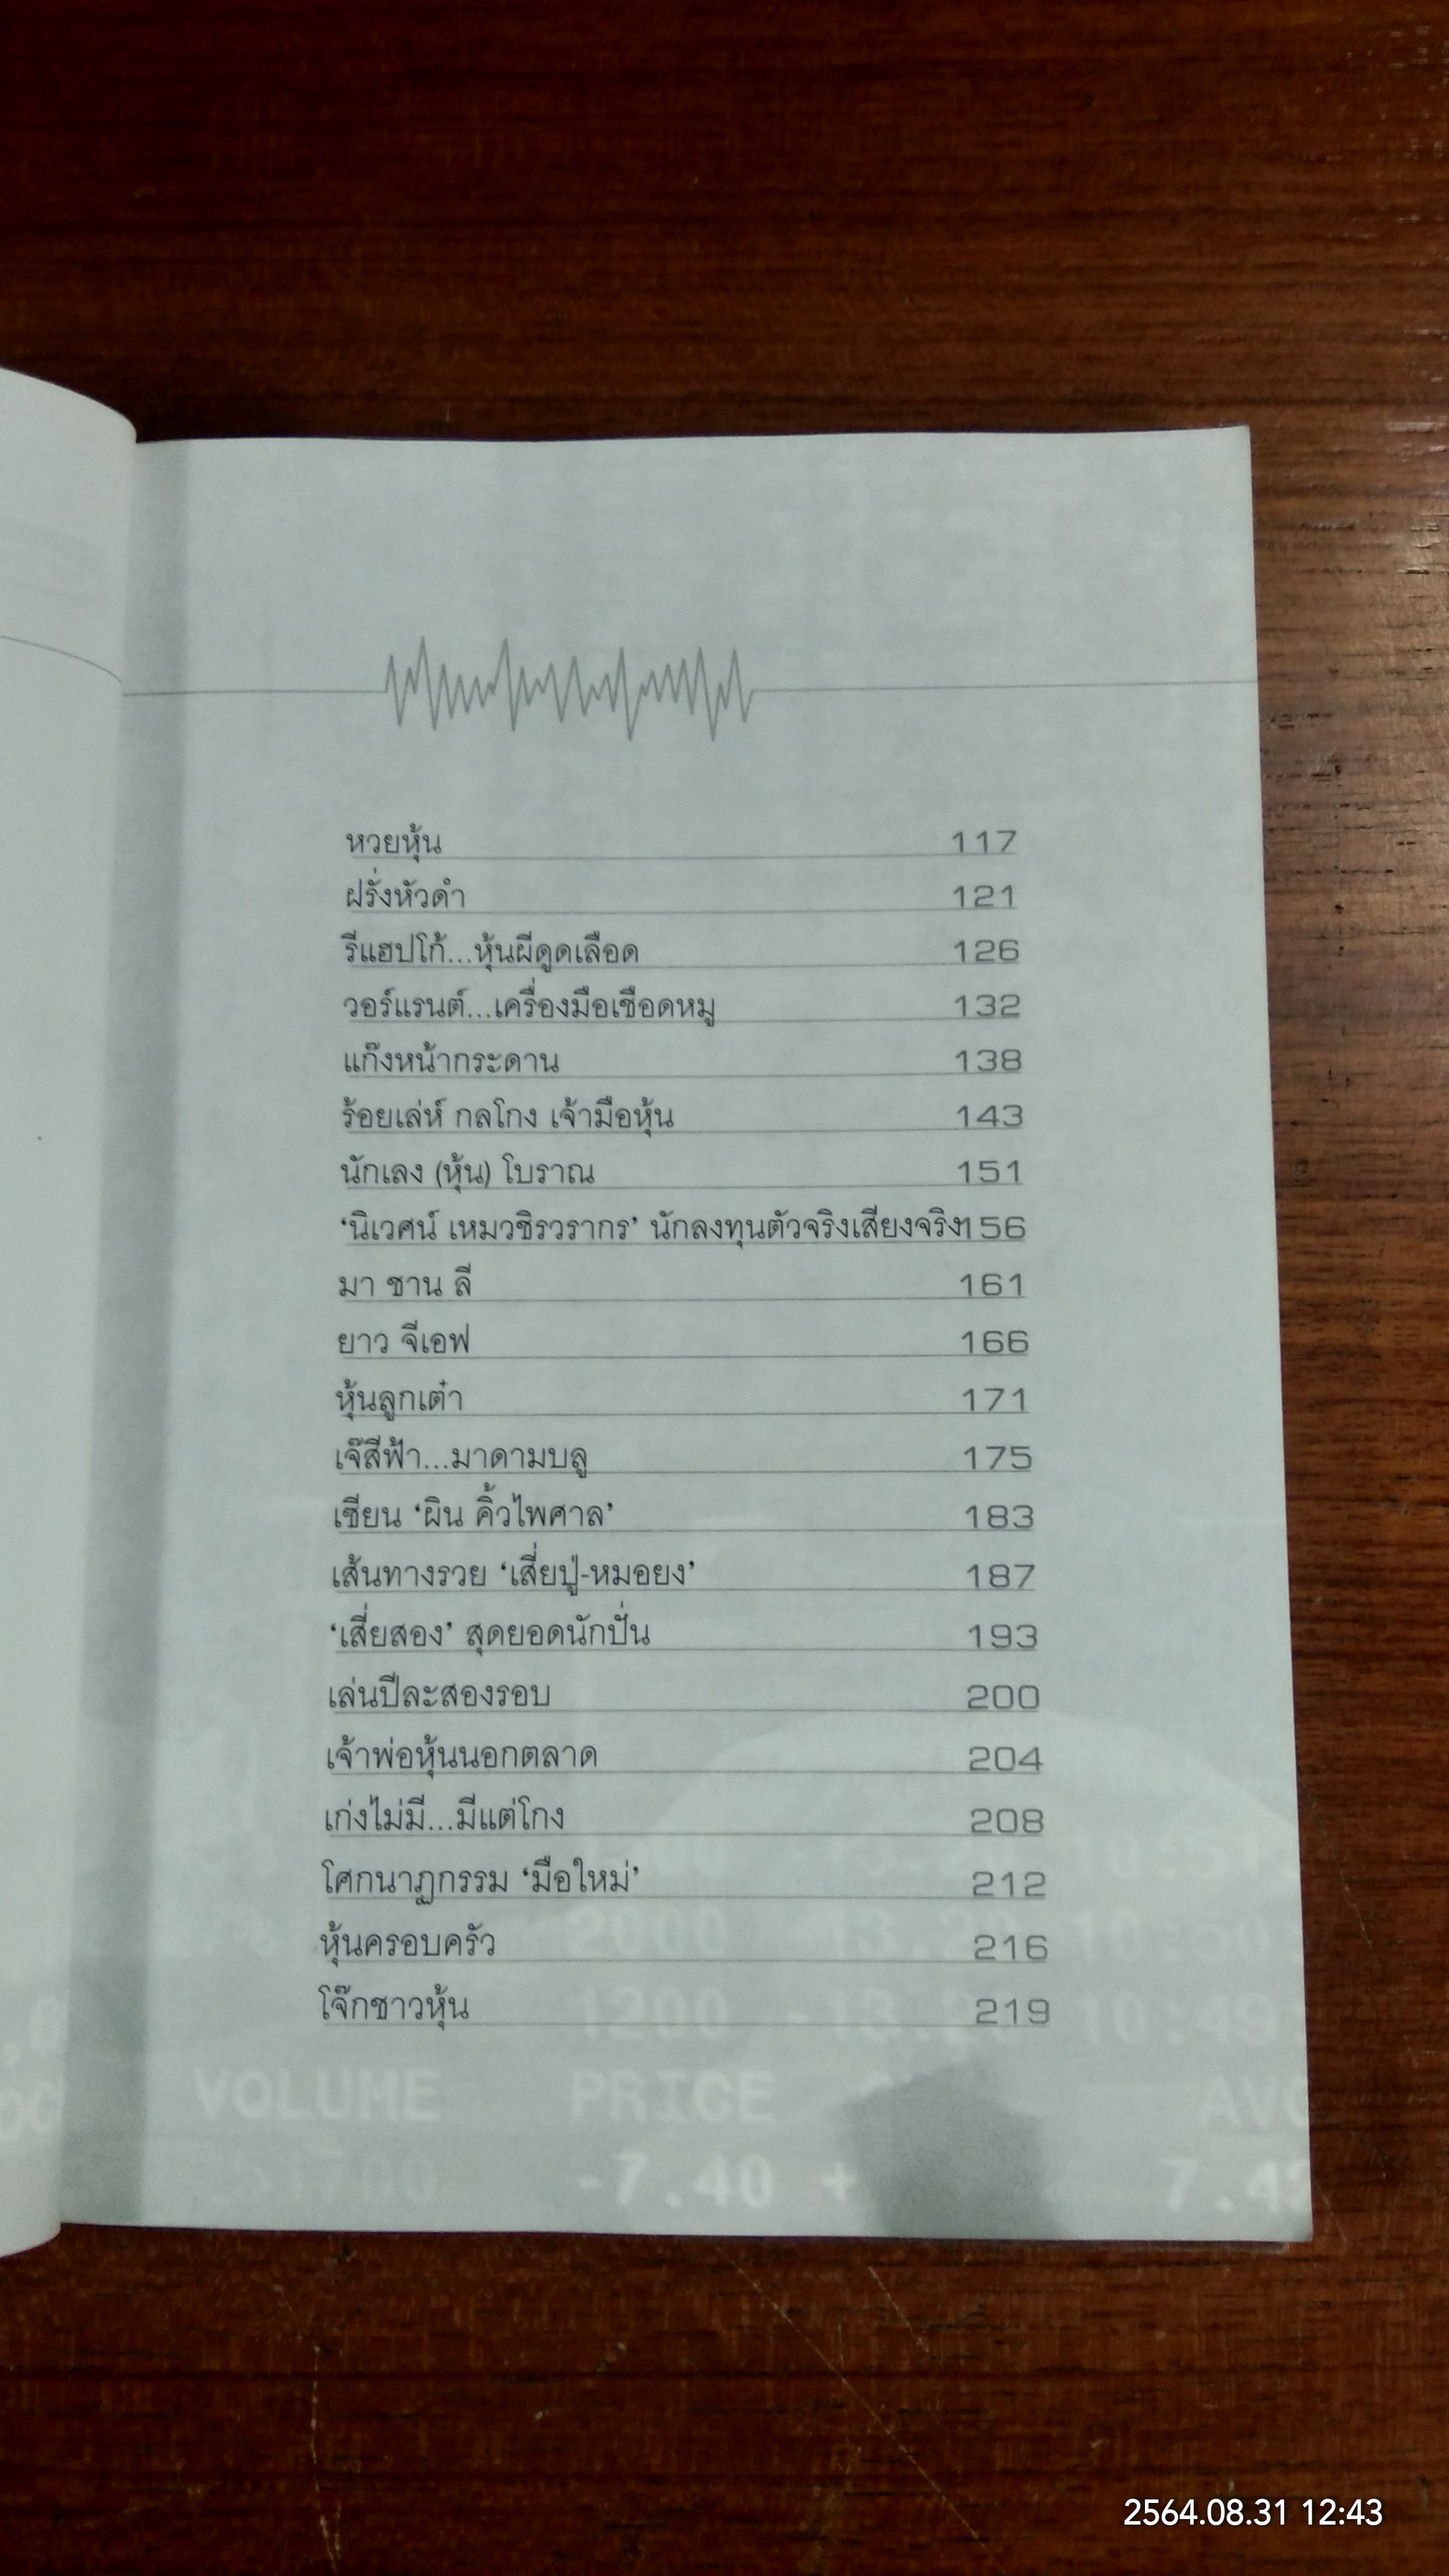 หวยหุ้น 117
ฝรั่งหัวดำ 121
รีแฮปโก้...หุ้นผีดูดเลือด 126
วอร์แรนต์...เครื่องมือเชือดหมู 132
แก๊งหน้ากระดาน 138
ร้อยเล่ห์ กลโกง เจ้ามือหุ้น 143
นักเลง (หุ้น) โบราณ 151
‘นิเวศน์ เหมวชิรวรากร’ นักลงทุนตัวจริงเสียงจริง 156
มา ซาน ลี 161
ยาว จีเอฟ 166
หุ้นลูกเต๋า 171
เจ๊สีฟ้า...มาดามบลู 175
เซียน ‘ผิน คิ้วไพศาล’ 183
เส้นทางรวย ‘เสี่ยปู่-หมอยง’ 187
‘เสี่ยสอง’ สุดยอดนักปั่น 193
เล่นปีละสองรอบ 200
เจ้าพ่อหุ้นนอกตลาด 204
เก่งไม่มี...มีแต่โกง 208
โศกนาฏกรรม ‘มือใหม่’ 212
หุ้นครอบครัว 216
โจ๊กชาวหุ้น 219
VOLUME PRICE
-7.40 +
2564.08.31 12:43